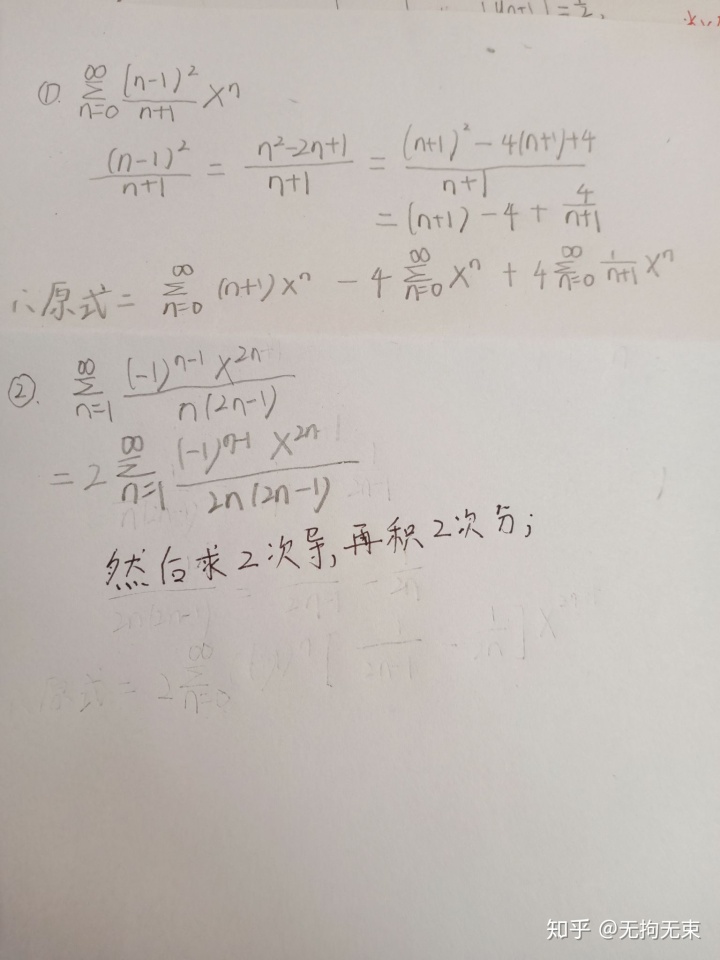 |Un+1| = 1/2,
①. ∑_{n=0}^{∞} (n-1)²/(n+1) xⁿ
(n-1)²/(n+1) = (n²-2n+1)/(n+1) = ((n+1)²-4(n+1)+4)/(n+1)
= (n+1) - 4 + 4/(n+1)
∴原式 = ∑_{n=0}^{∞} (n+1)xⁿ - 4∑_{n=0}^{∞} xⁿ + 4∑_{n=0}^{∞} 1/(n+1) xⁿ
②. ∑_{n=1}^{∞} (-1)^{n-1} x^{2n} / n(2n-1)
= 2∑_{n=1}^{∞} (-1)^{n-1} x^{2n} / 2n(2n-1)
然后求2次导,再积2次分;
原式 = 2∑_{n=0}^{∞}
知乎 @无拘无束